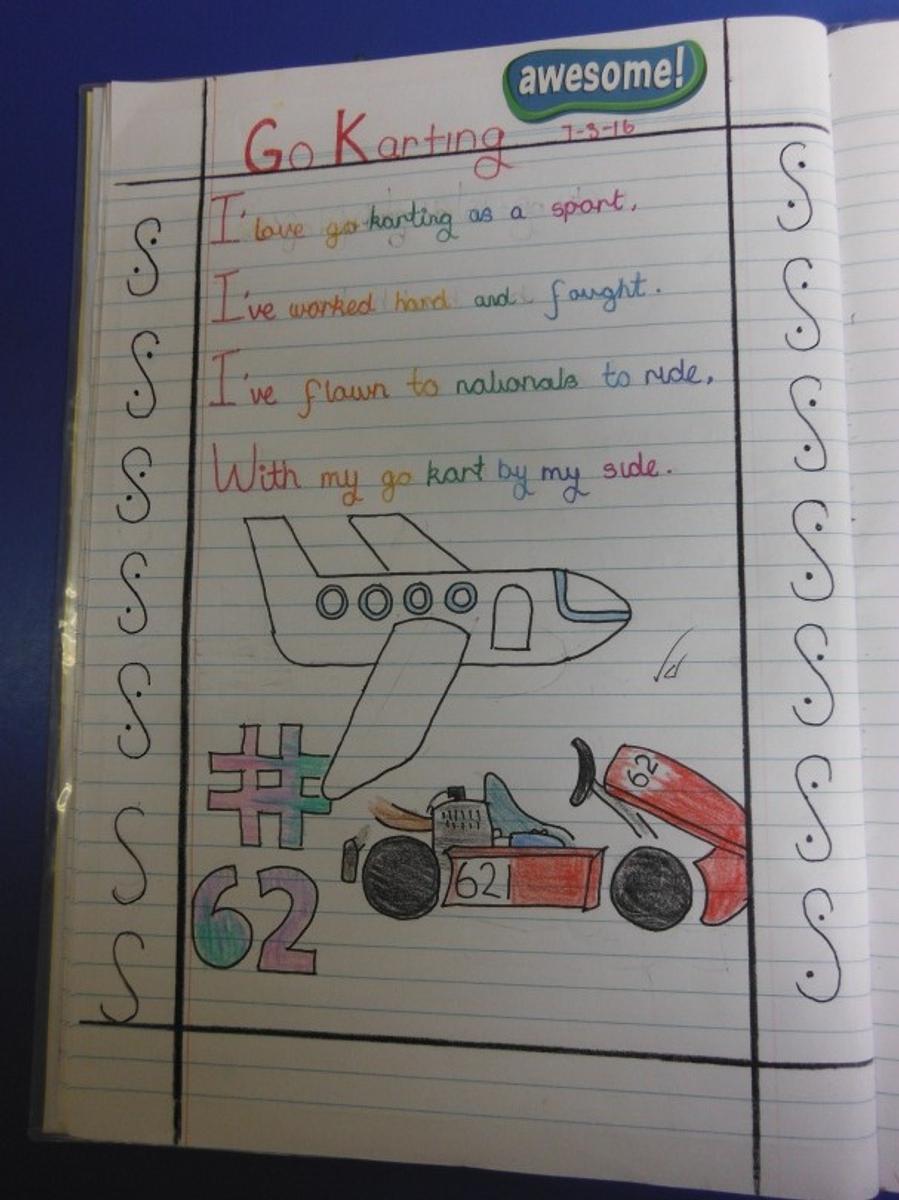 awesome!
Go Karting 7-3-16
I love go karting as a sport,
I've worked hard and fought.
I've flown to nationals to ride,
With my go kart by my side.
#
62
62
62